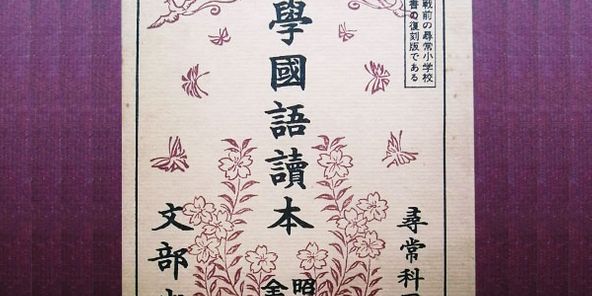 戦前の尋常小学校
書の復刻版である
尋常科
學國語讀本
昭
文部